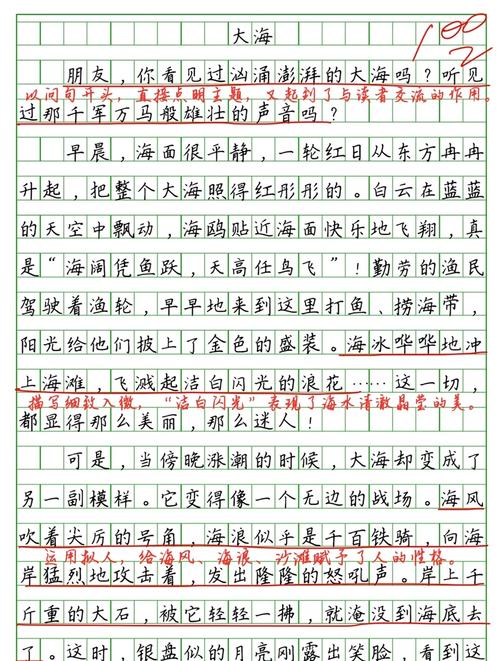 大海
100
朋友，你看见过汹涌澎湃的大海吗？听见
以问句开头，直接点明主题，又起到了与读者交流的作用。
过那千军万马般雄壮的声音吗？
早晨，海面很平静，一轮红日从东方冉冉
升起，把整个大海照得红彤彤的。白云在蓝蓝
的天空中飘动，海鸥贴近海面快乐地飞翔，真
是“海阔凭鱼跃，天高任鸟飞”！勤劳的渔民
驾驶着渔轮，早早地来到这里打鱼、捞海带，
阳光给他们披上了金色的盛装。海冰哗哗地冲
上海滩，飞溅起洁白闪光的浪花……这一切，
描写细致入微，“洁白闪光”表现了海水清澈晶莹的美。
都显得那么美丽，那么迷人！
可是，当傍晚涨潮的时候，大海却变成了
另一副模样。它变得像一个无边的战场。海风
吹着尖厉的号角，海浪似乎是千百铁骑，向海
运用拟人，给海风、海浪、沙滩赋予了人的性格。
岸猛烈地攻击着，发出隆隆的怒吼声。岸上千
斤重的大石，被它轻轻一拂，就淹没到海底去
了。这时，银盘似的月亮刚露出笑脸，看到这